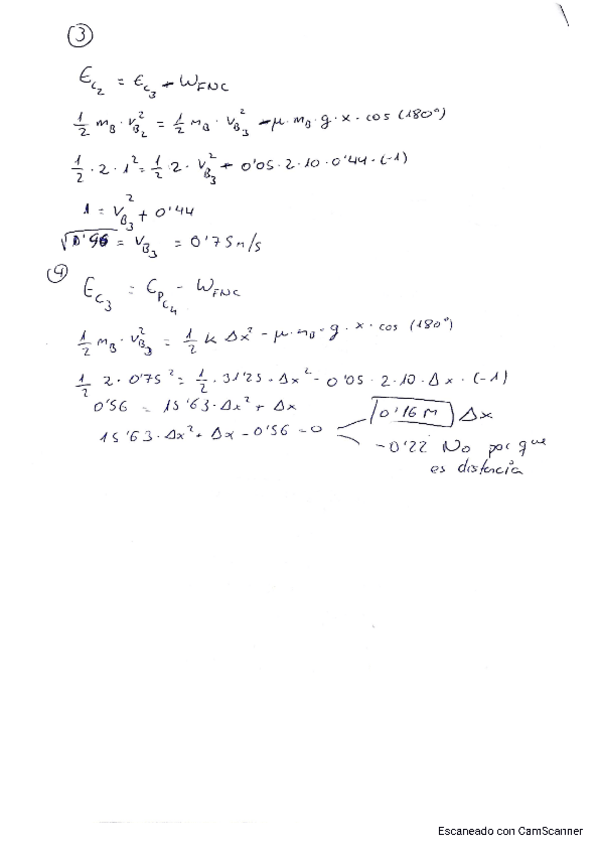 ③
E_C₂ = E_C₃ - W_FNC
1/2 m_B · v_B₂² = 1/2 m_B · v_B₃² - μ · m_B · g · x · cos (180°)
1/2 · 2 · 1² = 1/2 · 2 · v_B₃² - 0'05 · 2 · 10 · 0'44 · (-1)
1 = v_B₃² + 0'44
√0'56 = v_B₃ = 0'75 m/s
④
E_C₃ = E_P_C₄ - W_FNC
1/2 m_B · v_B₃² = 1/2 k Δx² - μ · m_B · g · x · cos (180°)
1/2 2 · 0'75² = 1/2 · 31'25 · Δx² - 0'05 · 2 · 10 · Δx · (-1)
0'56 = 15'63 · Δx² + Δx
15'63 · Δx² + Δx - 0'56 = 0
0'16 M Δx
-0'22 No por que
es distancia
Escaneado con CamScanner